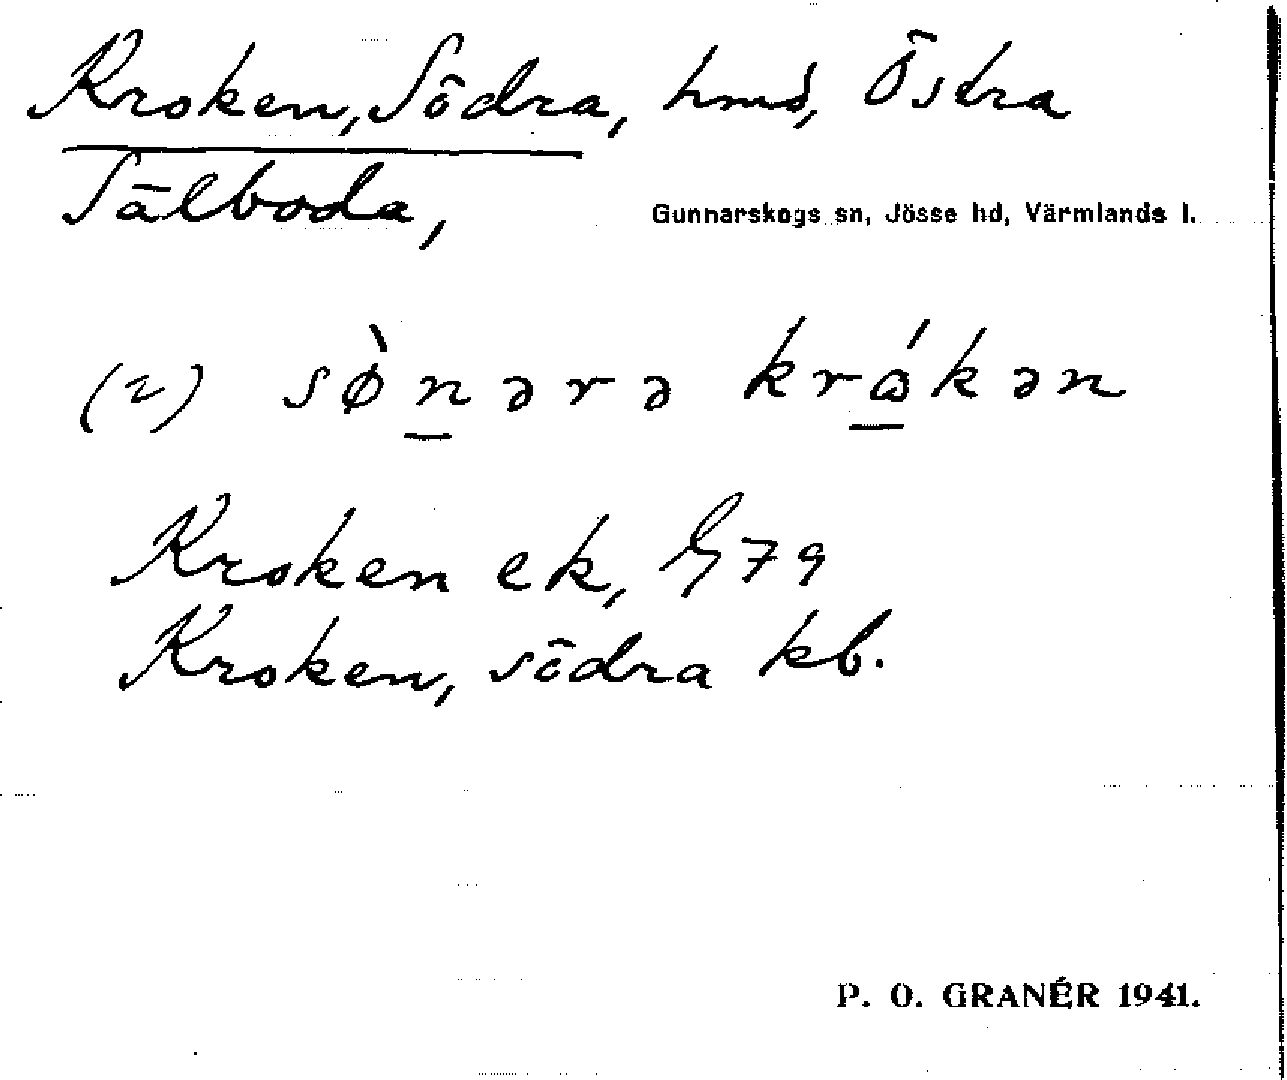 Kroken, Södra, hmd, Östra
Sälboda,
Gunnarskogs sn, Jösse hd, Värmlands l.
(2) sø̀nərə krɷ́kən
Kroken ek, G79
Kroken, södra kb.
P. O. GRANÉR 1941.